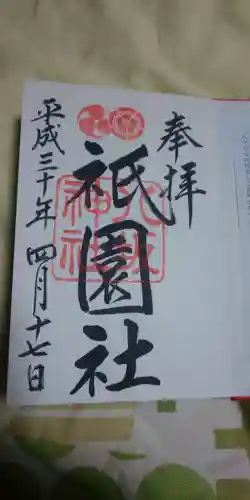 奉拝
祇園社
平成三十年四月十七日